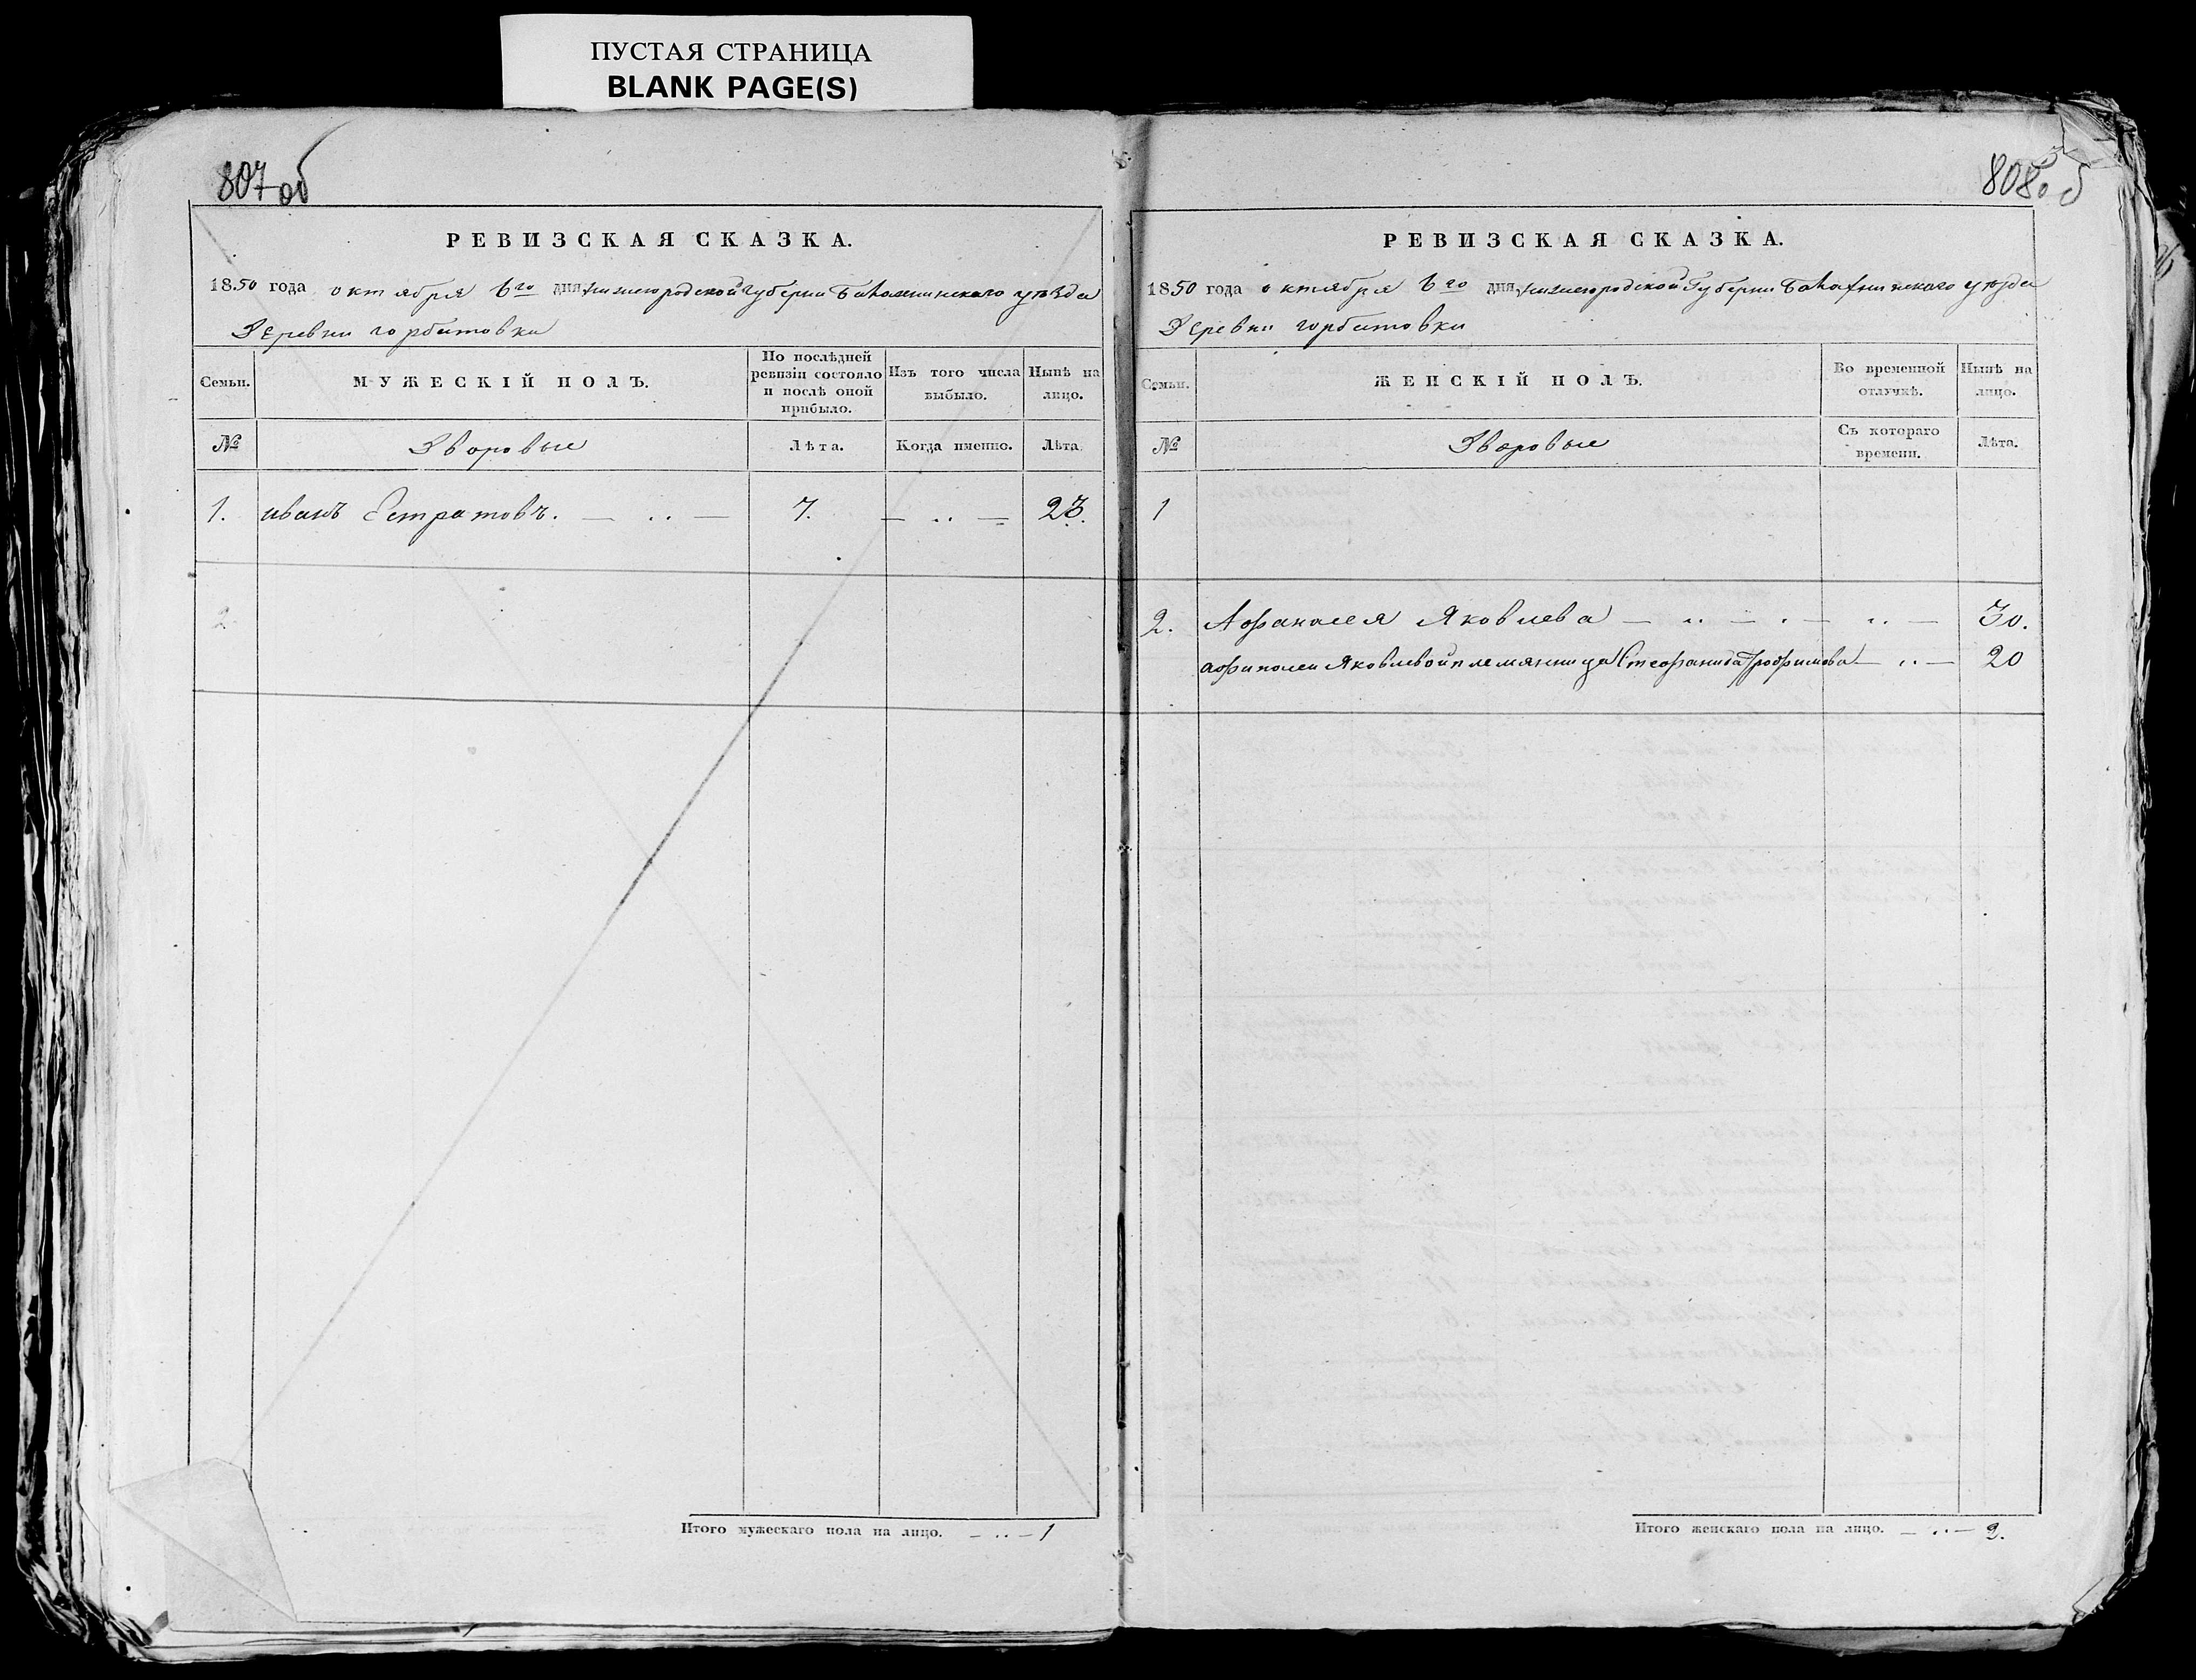 ПУСТАЯ СТРАНИЦА
BLANK PAGE(S)
807 об
РЕВИЗСКАЯ СКАЗКА.
1850 года октября 6го дня нижегородской губерни Балахнинскаго уезда
Деревни горбатовки
Семьи.
МУЖЕСКІЙ ПОЛЪ.
По послѣдней ревизіи состояло и послѣ оной прибыло.
Изъ того числа выбыло.
Нынѣ на лицо.
№
Дворовые
Лѣта.
Когда именно.
Лѣта.
1. иванъ Естратовъ. — .. — 7. — .. — 23.
2.
Итого мужескаго пола на лицо. — .. — 1
808 об
РЕВИЗСКАЯ СКАЗКА.
1850 года октября 6го дня, нижегородской Губерни Балахнинскаго уезда
Деревни горбатовки
Семьи.
ЖЕНСКІЙ ПОЛЪ.
Во временной отлучкѣ.
Нынѣ на лицо.
№
Дворовые
Съ котораго времени.
Лѣта.
1
2. Афанасея Яковлева — .. — . — .. — 30.
Яковлевой племянница Стефанида Трофимова — .. — 20
Итого женскаго пола на лицо. — .. — 2.